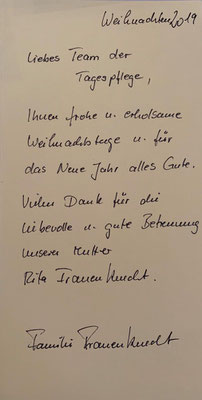 Weihnachten 2019
Liebes Team der
Tagespflege,
Ihnen frohe u. erholsame
Weihnachtstage u. für
das Neue Jahr alles Gute.
Vielen Dank für die
liebevolle u. gute Betreuung
unserer Mutter
Rita Frauenknecht.
Familie Frauenknecht